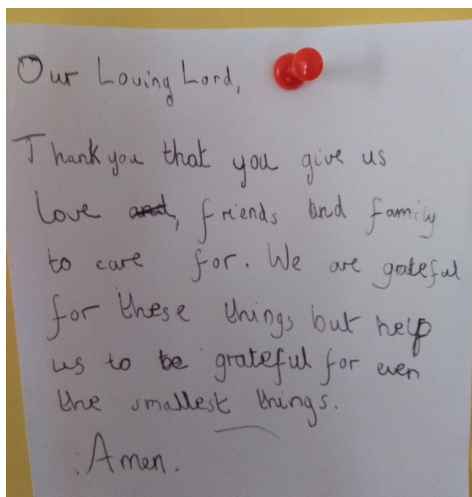 Our Loving Lord,
Thank you that you give us
love and, friends and family
to care for. We are grateful
for these things but help
us to be grateful for even
the smallest things.
Amen.